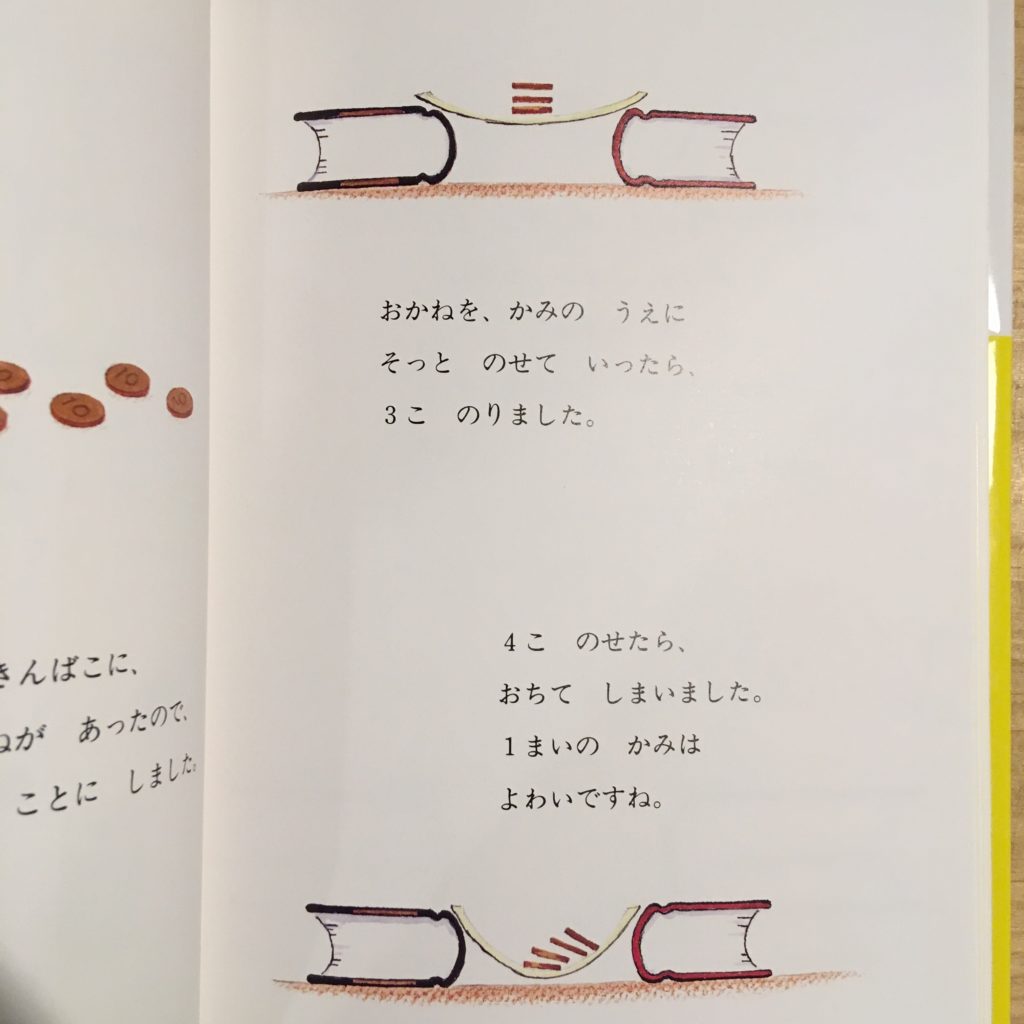 10
10
10
きんばこに、
ねが　あったので、
ことに　しました。
おかねを、かみの　うえに
そっと　のせて　いったら、
3こ　のりました。
4こ　のせたら、
おちて　しまいました。
1まいの　かみは
よわいですね。